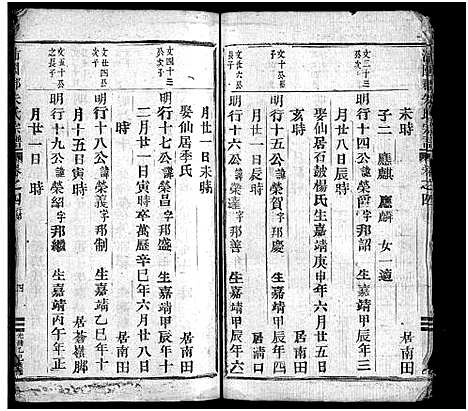 未時
子二 應麒 應麟 女一適
文三十三公次子
明行十四公諱榮 字邦韶 生嘉靖甲辰年三
月廿八日辰時 居南田
娶仙居石鼓楊氏生嘉靖庚申年六月廿五日
亥時 居溝口
文廿六公長子
明行十六公諱榮 字邦慶 生嘉靖甲辰年
字邦善 生嘉靖甲辰年六
月廿一日未時 居南田
娶仙居季氏
文四十三公次子
明行十七公諱榮昌字邦盛 生嘉靖甲辰年十
二月廿一日寅時卒萬歷辛巳年六月廿八日
時
文廿四公次子
明行十八公諱榮義字邦制 生嘉靖乙巳年十
月十五日寅時 居嶺脚
文五十公之長子
明行十九公諱榮紹字邦繼 生嘉靖丙午年正
月廿一日 時 居南田
朱氏宗譜 卷之四
四